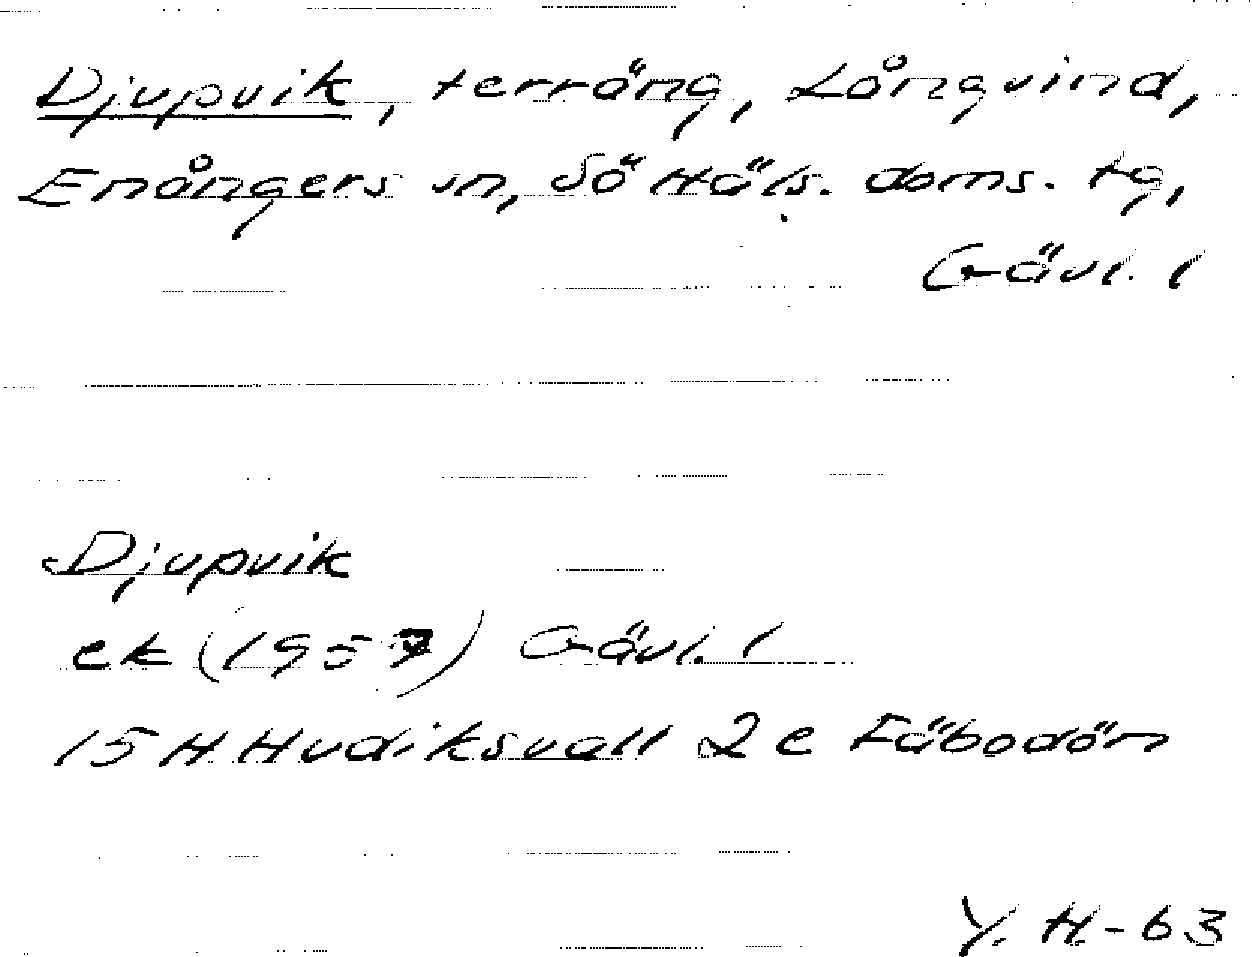 Djupvik, terräng, Långvind,
Enångers sn, Sö Häls. doms. tg,
Gävl. l
Djupvik
ek (1957) Gävl. l
15 H Hudiksvall 2 e Fäbodön
Y. H-63